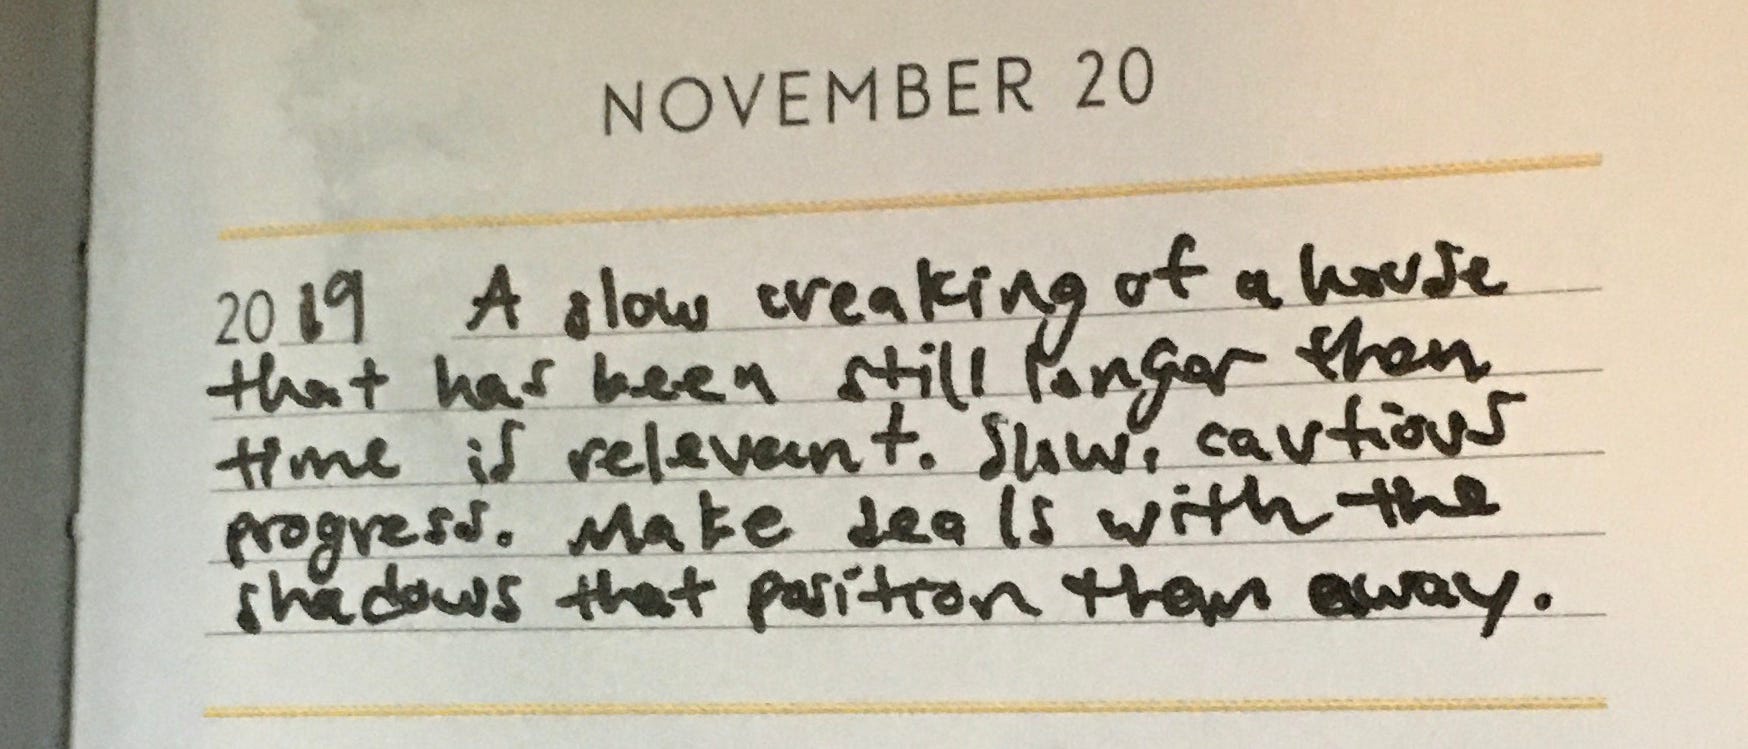 NOVEMBER 20
2019 A slow creaking of a house
that has been still longer than
time is relevant. Slow, cautious
progress. Make deals with the
shadows that position them away.